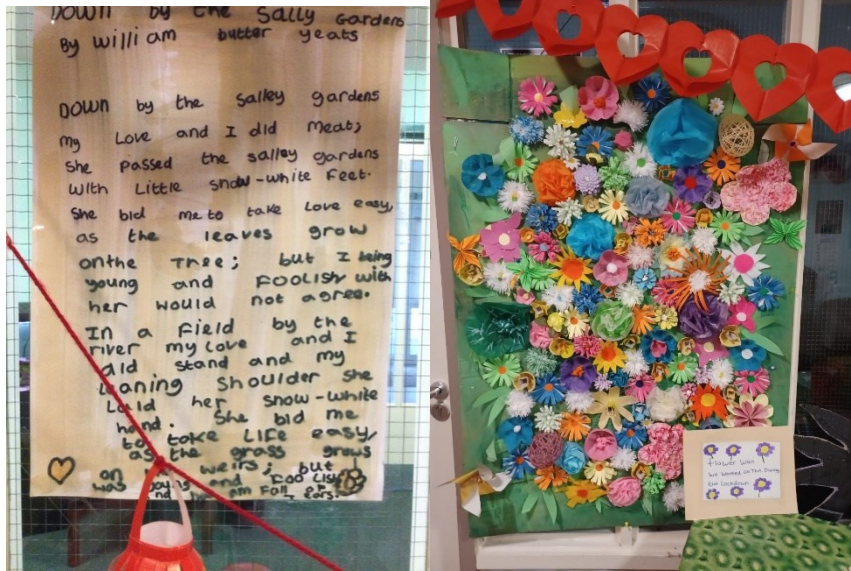 DOWN by the Sally Gardens
By william butter yeats
DOWN by the Salley gardens
my Love and I did meat;
She passed the salley gardens
with Little snow-white Feet.
She bid me to take Love easy,
as the leaves grow
onthe Tree; but I being
young and FOOLISH with
her would not agree.
In a Field by the
river my Love and I
did stand and my
leaning Shoulder She
Laid her snow-white
hand. She bid me
to take LIFE easy,
as the grass grows
on weirs; but
was young and FOOLISH
am Full OF
flower Wall
was worked on During
the Lockdown